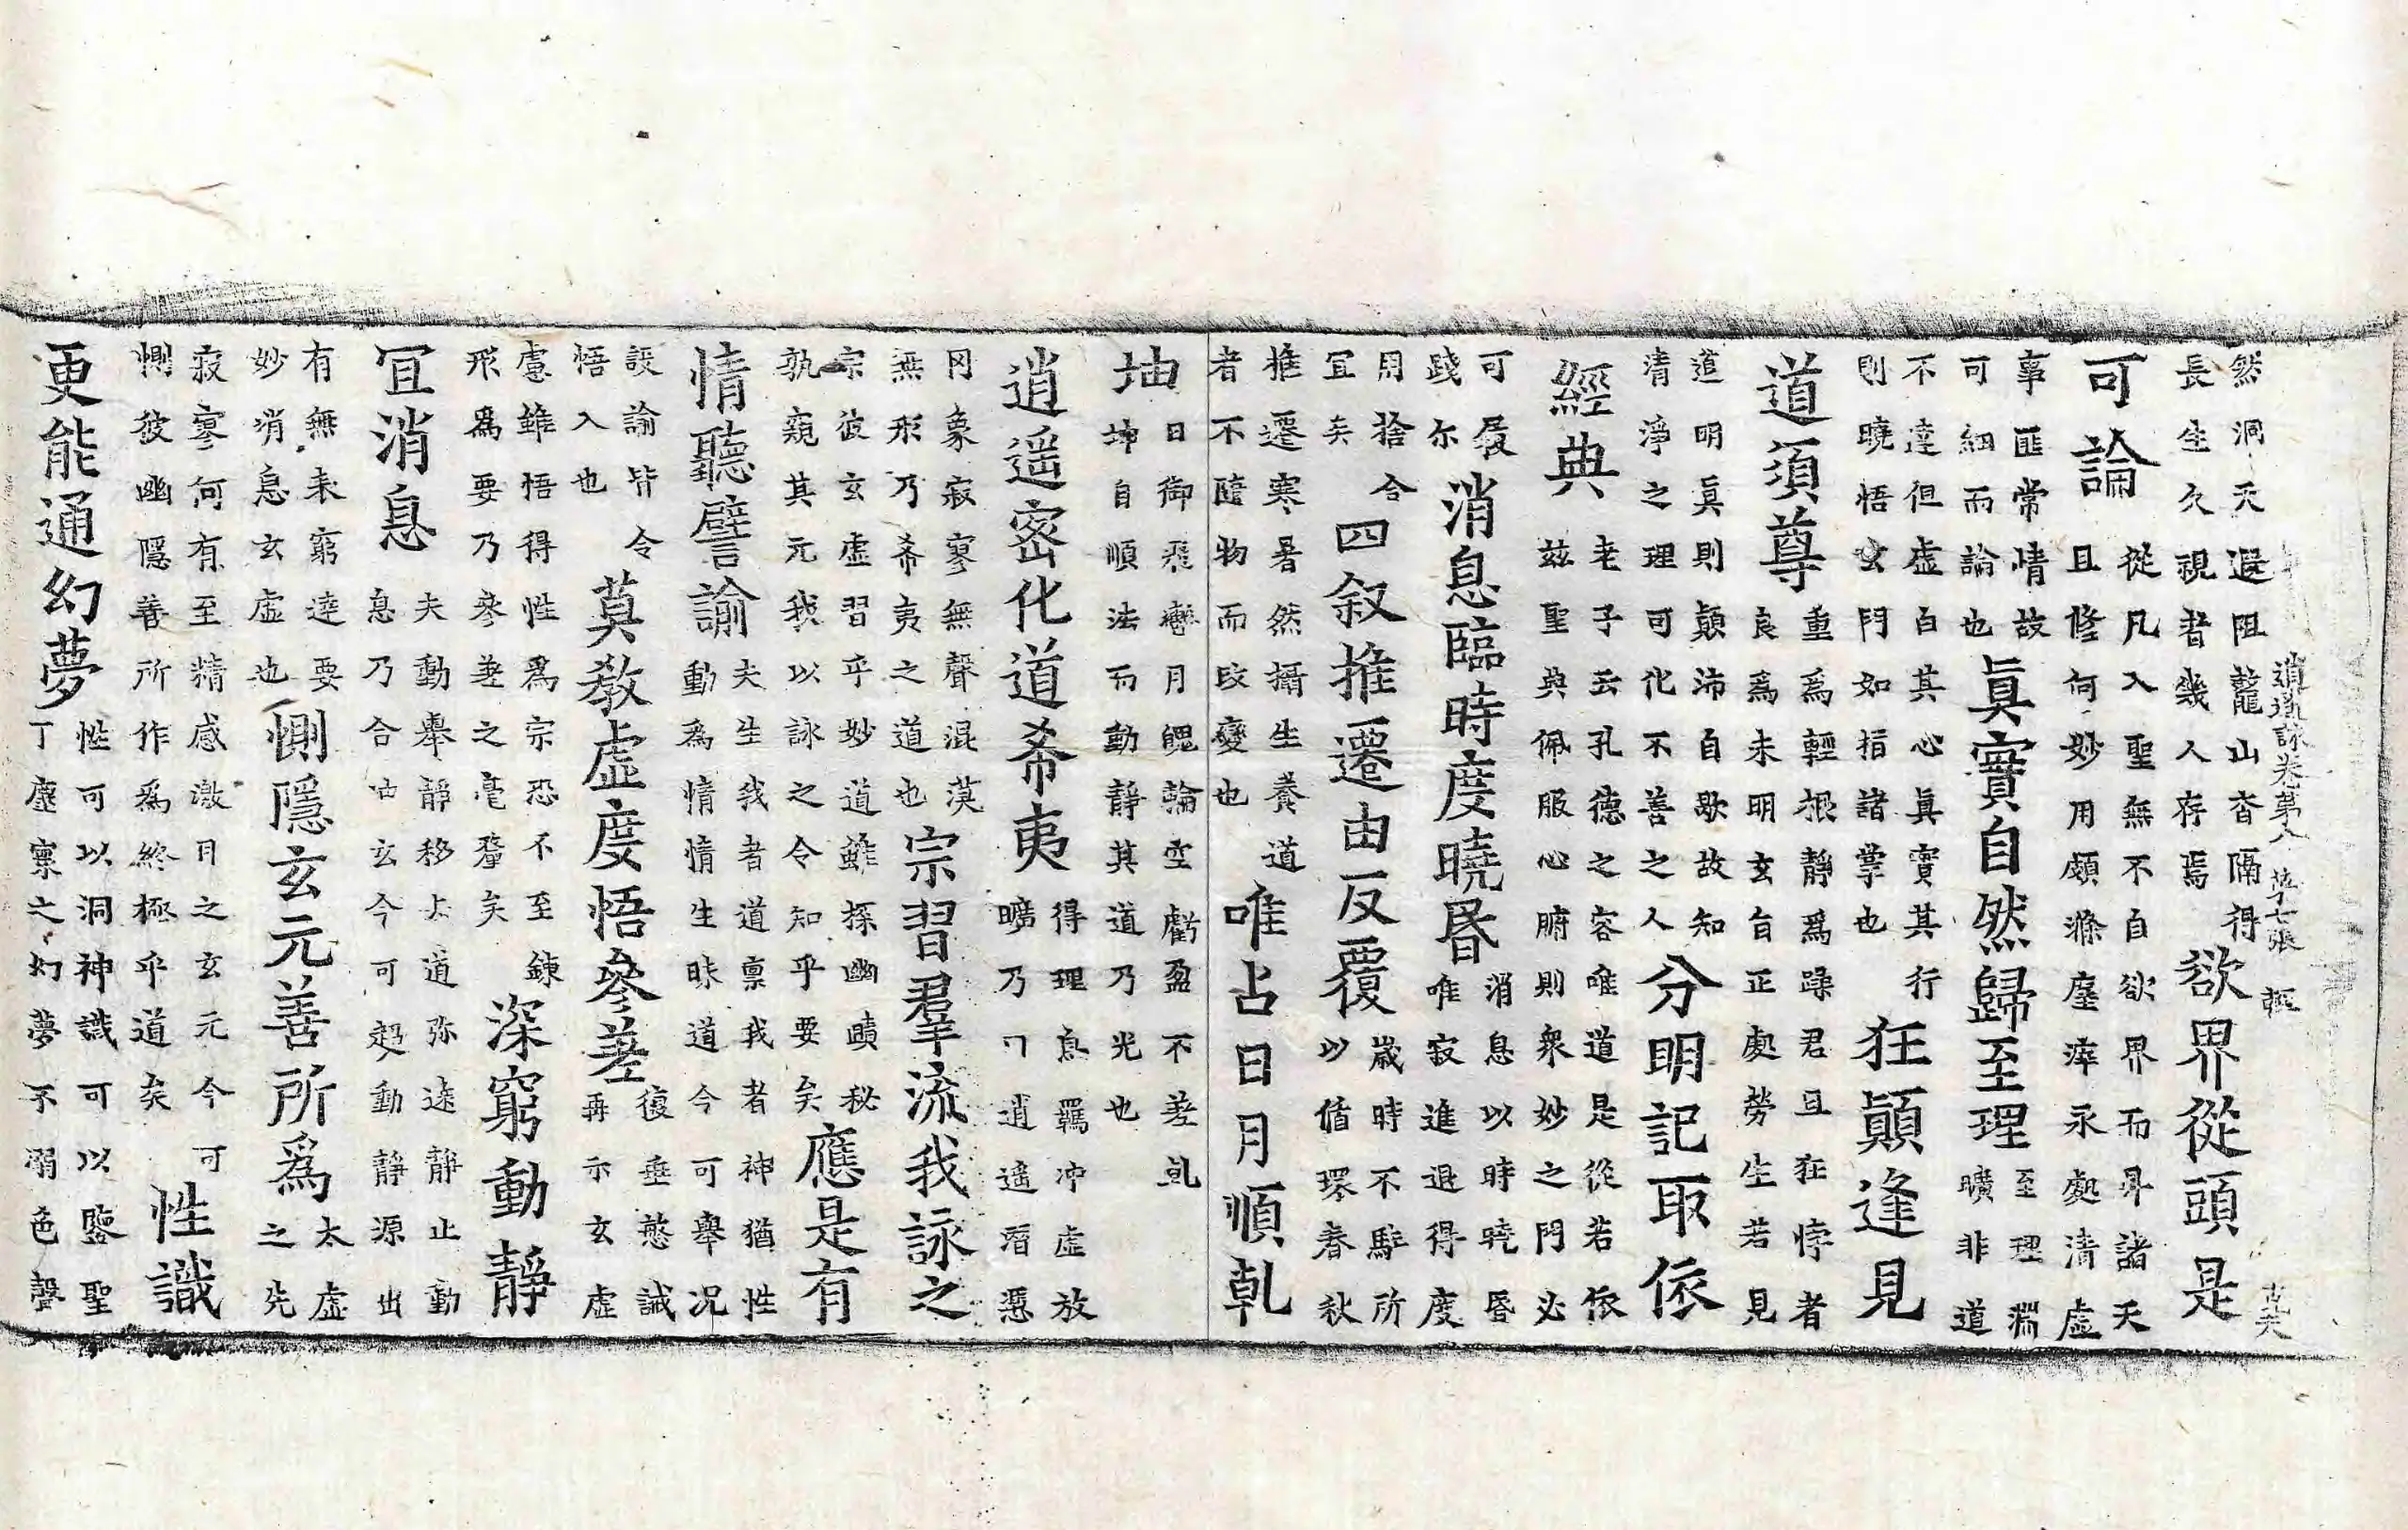 逍遥詠卷第八　第七張
然洞天遐阻龍山杳隔得
長生久視者幾人存焉
欲界從頭是
可論
從凡入聖無不自欲界而昇諸天
且修何妙用頗滌塵滓永處清虛
事匪常情故
可細而論也
眞實自然歸至理
至理淵
曠非道
不達但虛白其心眞實其行
則曉悟玄門如指諸掌也
狂顚逢見
道須尊
重爲輕根靜爲躁君且狂悖者
良爲未明玄旨正處勞生若見
道明眞則顚沛自歇故知
清淨之理可化不善之人
分明記取依
經典
老子云孔德之容唯道是從若依
茲聖典佩服心腑則衆妙之門必
可履
踐尔
消息臨時度曉昬
消息以時曉昬
唯寂進退得度
用捨合
冝矣
四叙推遷由反覆
歲時不駐所
以循環春秋
推遷寒暑然攝生養道
者不隨物而改變也
唯占日月順乹
坤
日御飛轡月魄輪空虧盈不差乹
坤自順法而動靜其道乃光也
逍遥密化道希夷
得理息羈冲虛放
曠乃曰逍遥潛惡
罔象寂寥無聲混漠
無形乃希夷之道也
宗習羣流我詠之
宗彼玄虛習乎妙道雖探幽賾秘
孰窺其元我以詠之令知乎要矣
應是有
情聽譬諭
夫生我者道禀我者神猶性
動爲情情生昧道今可舉况
設諭皆令
悟入也
莫敎虛度悟參差
復垂慜誡
再示玄虛
慮雖悟得性爲宗恐不至鍊
形爲要乃參差之毫釐矣
深窮動靜
冝消息
夫動舉靜移上道弥遠靜止動
息乃合玄今可超動靜源出
有無來窮達要
妙消息玄虛也
惻隱玄元善所爲
太虛
之先
寂寥何有至精感激目之玄元今可
惻彼幽隱善所作爲終極乎道矣
性識
更能通幻夢
性可以洞神識可以鑒聖
了塵寰之幻夢不溺色聲